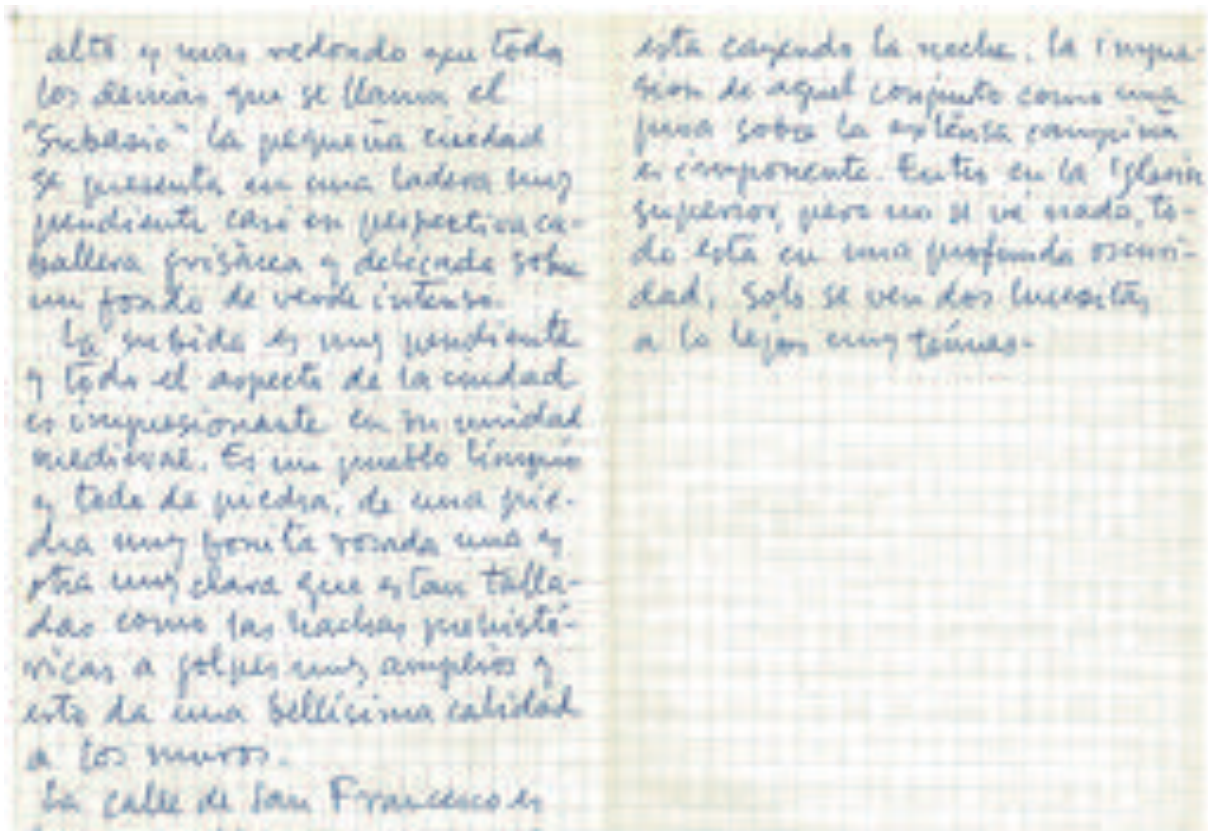 alto y mas redondo que todos
los demás que se llama el
"Subasio" la pequeña ciudad
se presenta en una ladera muy
pendiente casi en perspectiva ca-
ballera grisácea y delicada sobre
un fondo de verde intenso.
La subida es muy pendiente
y todo el aspecto de la ciudad
es impresionante en su unidad
medieval. Es un pueblo limpio
y todo de piedra, de una pie-
dra muy bonita rosada una y
otra muy clara que estan talla-
das como las hachas prehistó-
ricas a golpes muy amplios y
esto da una bellísima calidad
a los muros.
La calle de San Francesco es
esta cayendo la noche. la impre-
sion de aquel conjunto como una
proa sobre la extensa campiña
es imponente. Entro en la Iglesia
superior, pero no se vé nada, to-
do esta en una profunda oscuri-
dad, solo se ven dos lucecitas
a lo lejos muy ténues.